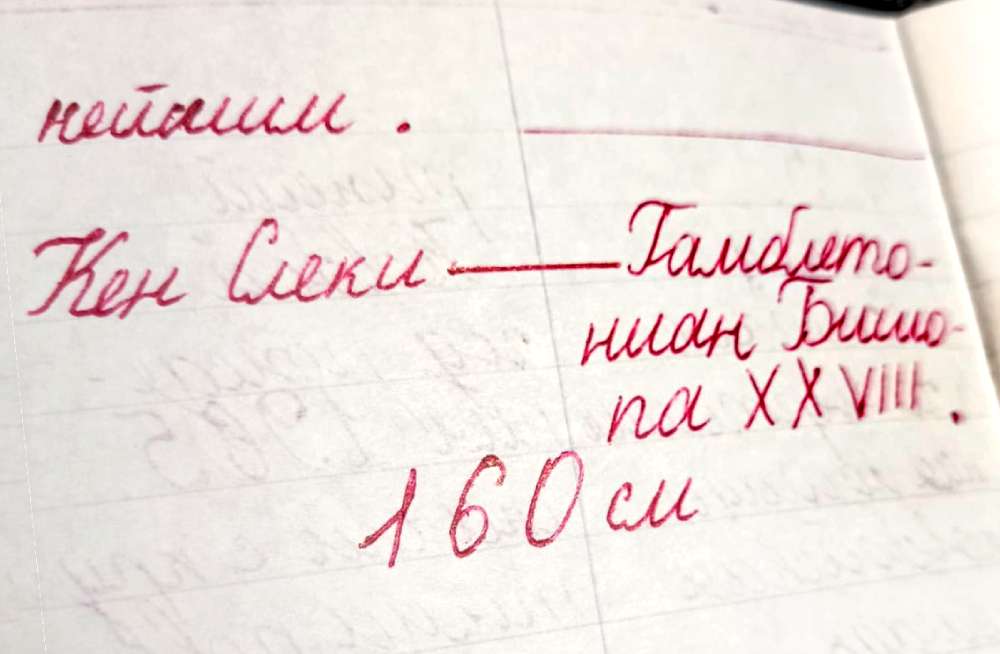 нейшим.
Кен Слеки — Гамблето-
ниан Бишо-
па XXVIII.
160 см